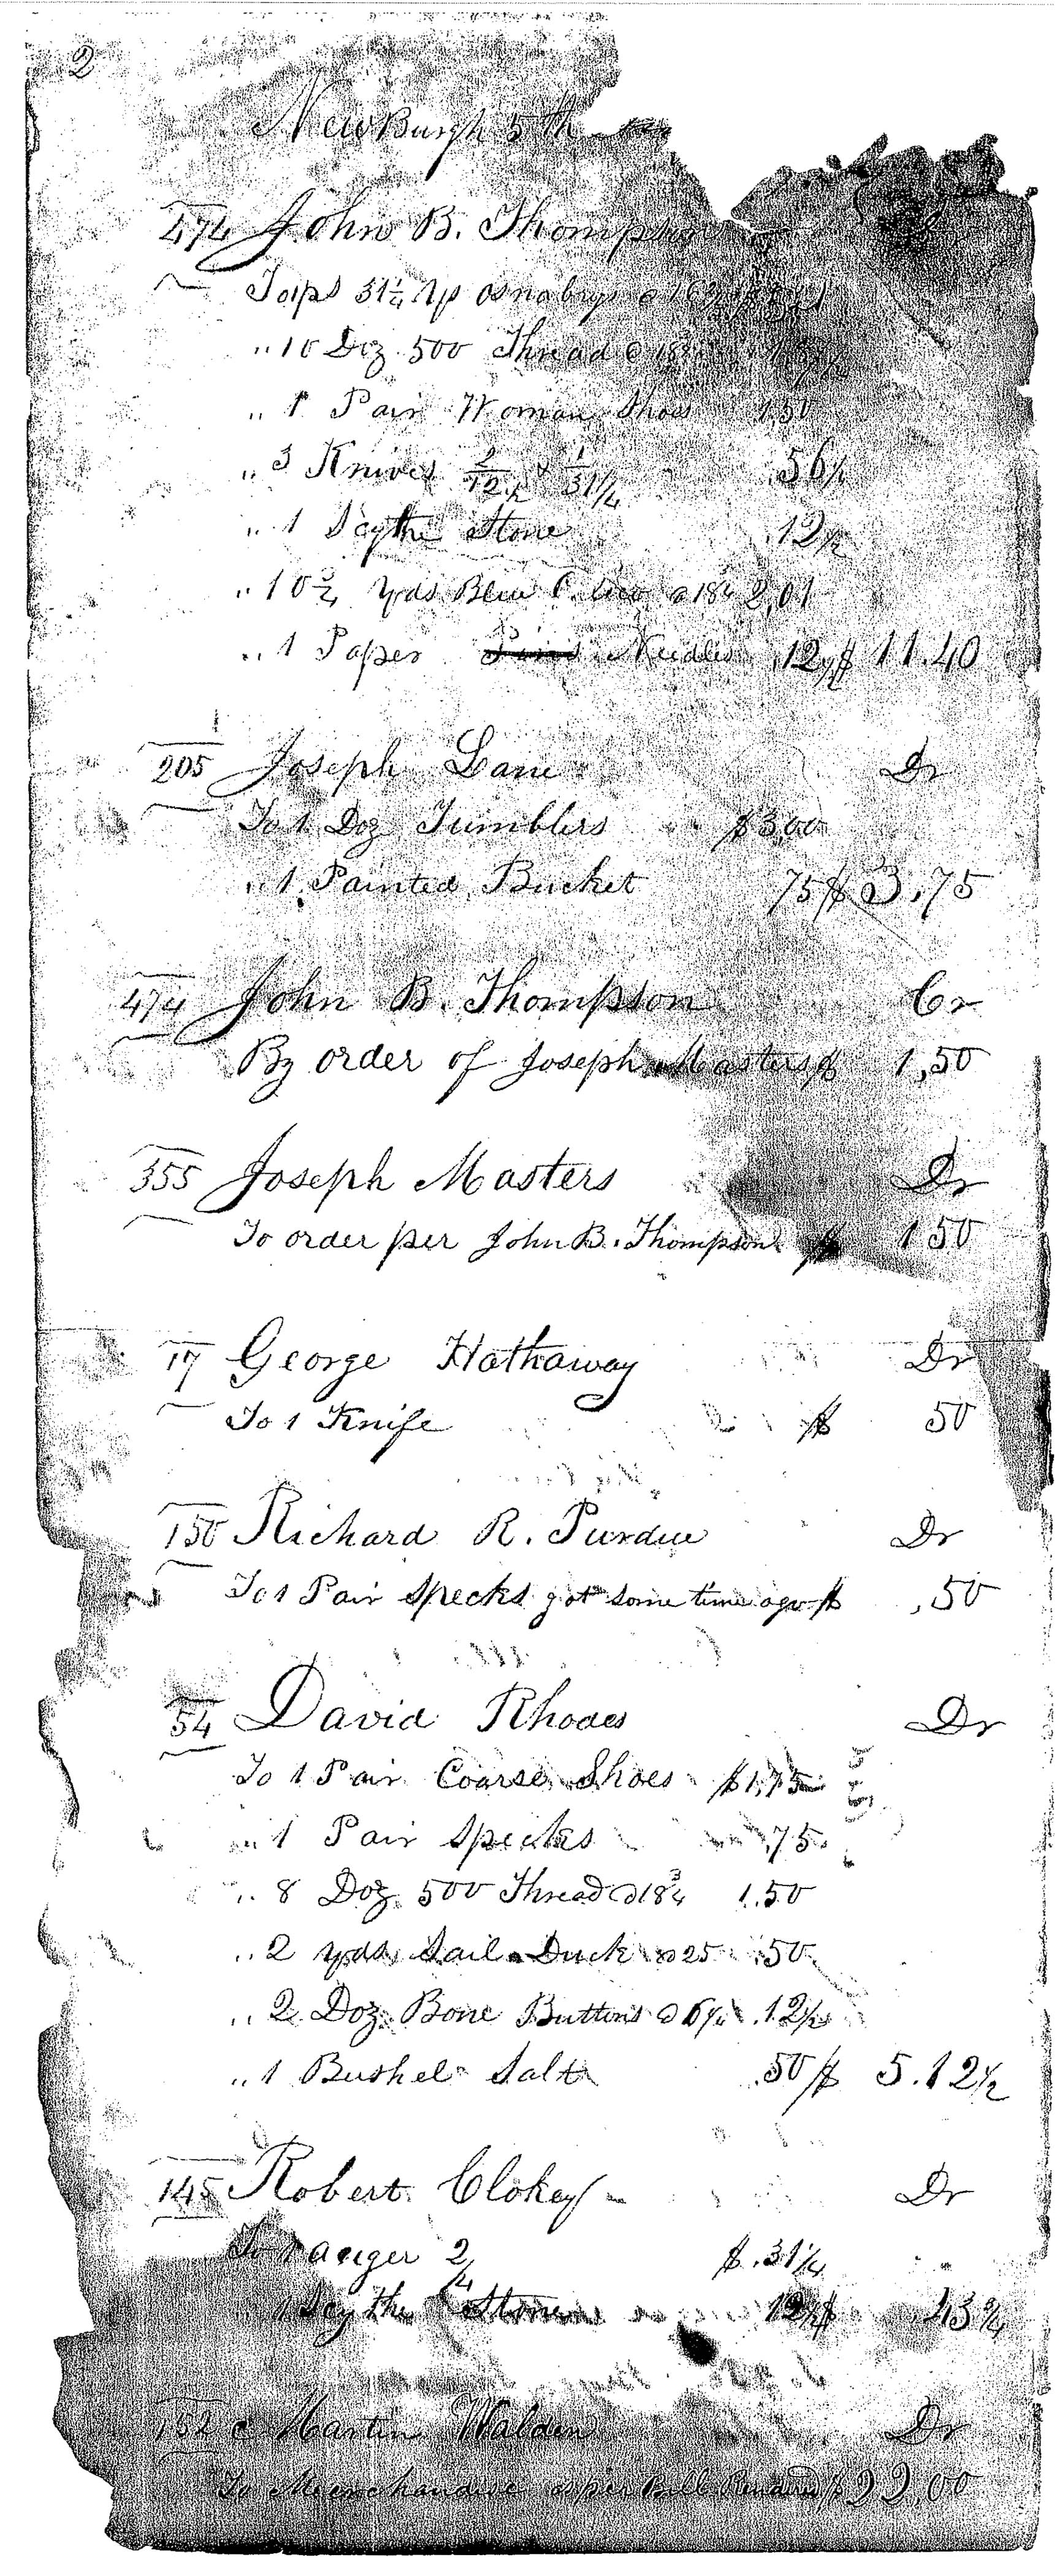 2
NewBurgh 5th
474 John B. Thompson
To 1 ps 31 1/4 yds osnabrgs @
" 10 Doz 500 Thread @ 18
" 1 Pair Woman Shoes 1,50
" 3 Knives 2/12 1/2 & 1/31 1/4 ,56 1/4
" 1 Scythe Stone ,12 1/2
" 10 3/4 yds Blue Calico @ 18 3/4 2,01
" 1 Paper Needles ,12 1/2 $ 11.40
205 Joseph Lane Dr
To 1 Doz Tumblers $ 3,00
" 1 Painted Bucket 75 $ 3,75
474 John B. Thompson Cr
By order of Joseph Masters $ 1,50
355 Joseph Masters Dr
To order per John B. Thompson $ 1 50
17 George Hathaway Dr
To 1 Knife $ 50
150 Richard R. Purdue Dr
To 1 Pair Specks got some time ago $ ,50
54 David Rhodes Dr
To 1 Pair Coarse Shoes $ 1,75
" 1 Pair Specks ,75
" 8 Doz. 500 Thread @ 18 3/4 1.50
" 2 yds Sail Duck @ 25 .50
" 2 Doz Bone Buttons @ 6 1/4 .12 1/2
" 1 Bushel Salt .50 $ 5.12 1/2
145 Robert Clokey Dr
To 1 auger 2/4 $ .31 1/4
" 1 Scythe Stone 12 1/2 $ ,43 3/4
152 Martin Walden Dr
To Merchandise as per Bill Rendered $ 22,00